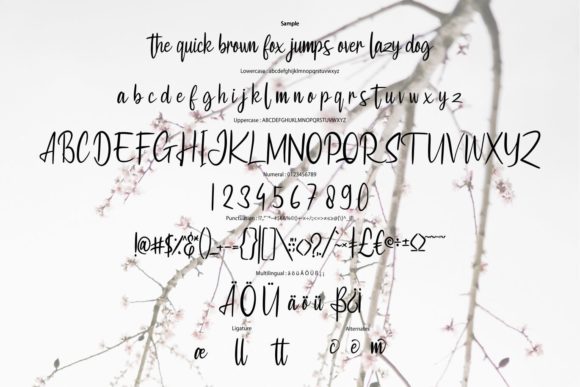 Sample
the quick brown fox jumps over lazy dog
Lowercase : abcdefghijklmnopqrstuvwxyz
a b c d e f g h i j k l m n o p q r s t u v w x y z
Uppercase : ABCDEFGHIJKLMNOPQRSTUVWXYZ
ABCDEFGHIJKLMNOPQRSTUVWXYZ
Numeral : 0123456789
1 2 3 4 5 6 7 8 9 0
Punctuation :
!@#$%^&*()_+-={}|[]\:;<>?,/
Multilingual : ä ö ü Ä Ö Ü ß ¿ ¡
Ä Ö Ü ä ö ü ß ¿ ¡
Ligature Alternates
æ ll tt c e m